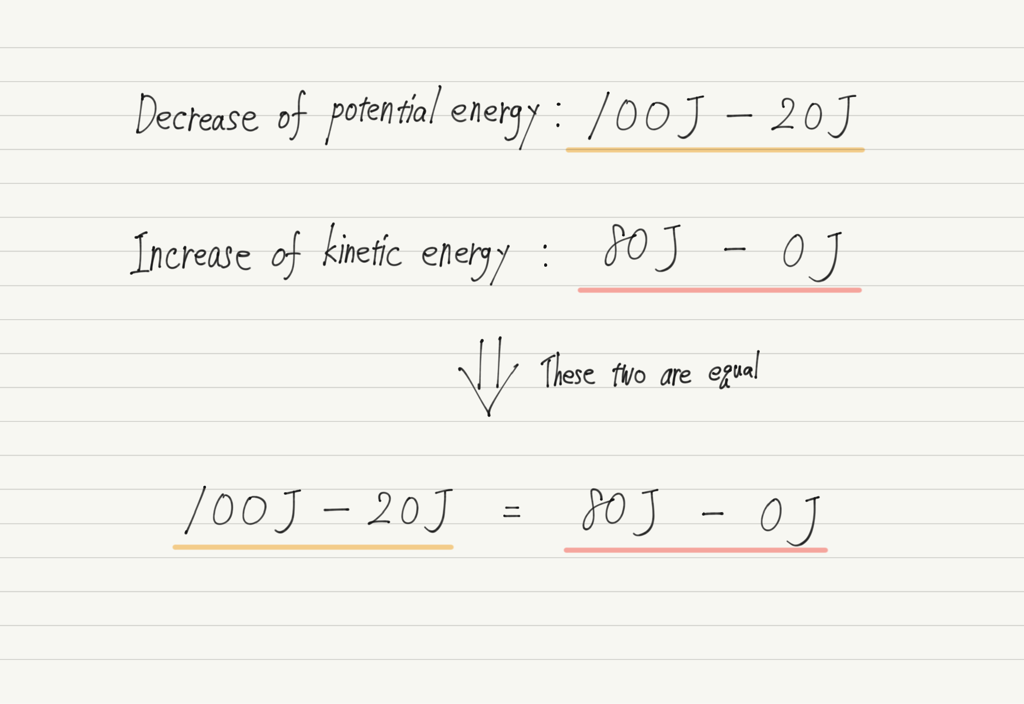 Decrease of potential energy: 100J - 20J
Increase of kinetic energy: 80J - 0J
These two are equal
100J - 20J = 80J - 0J